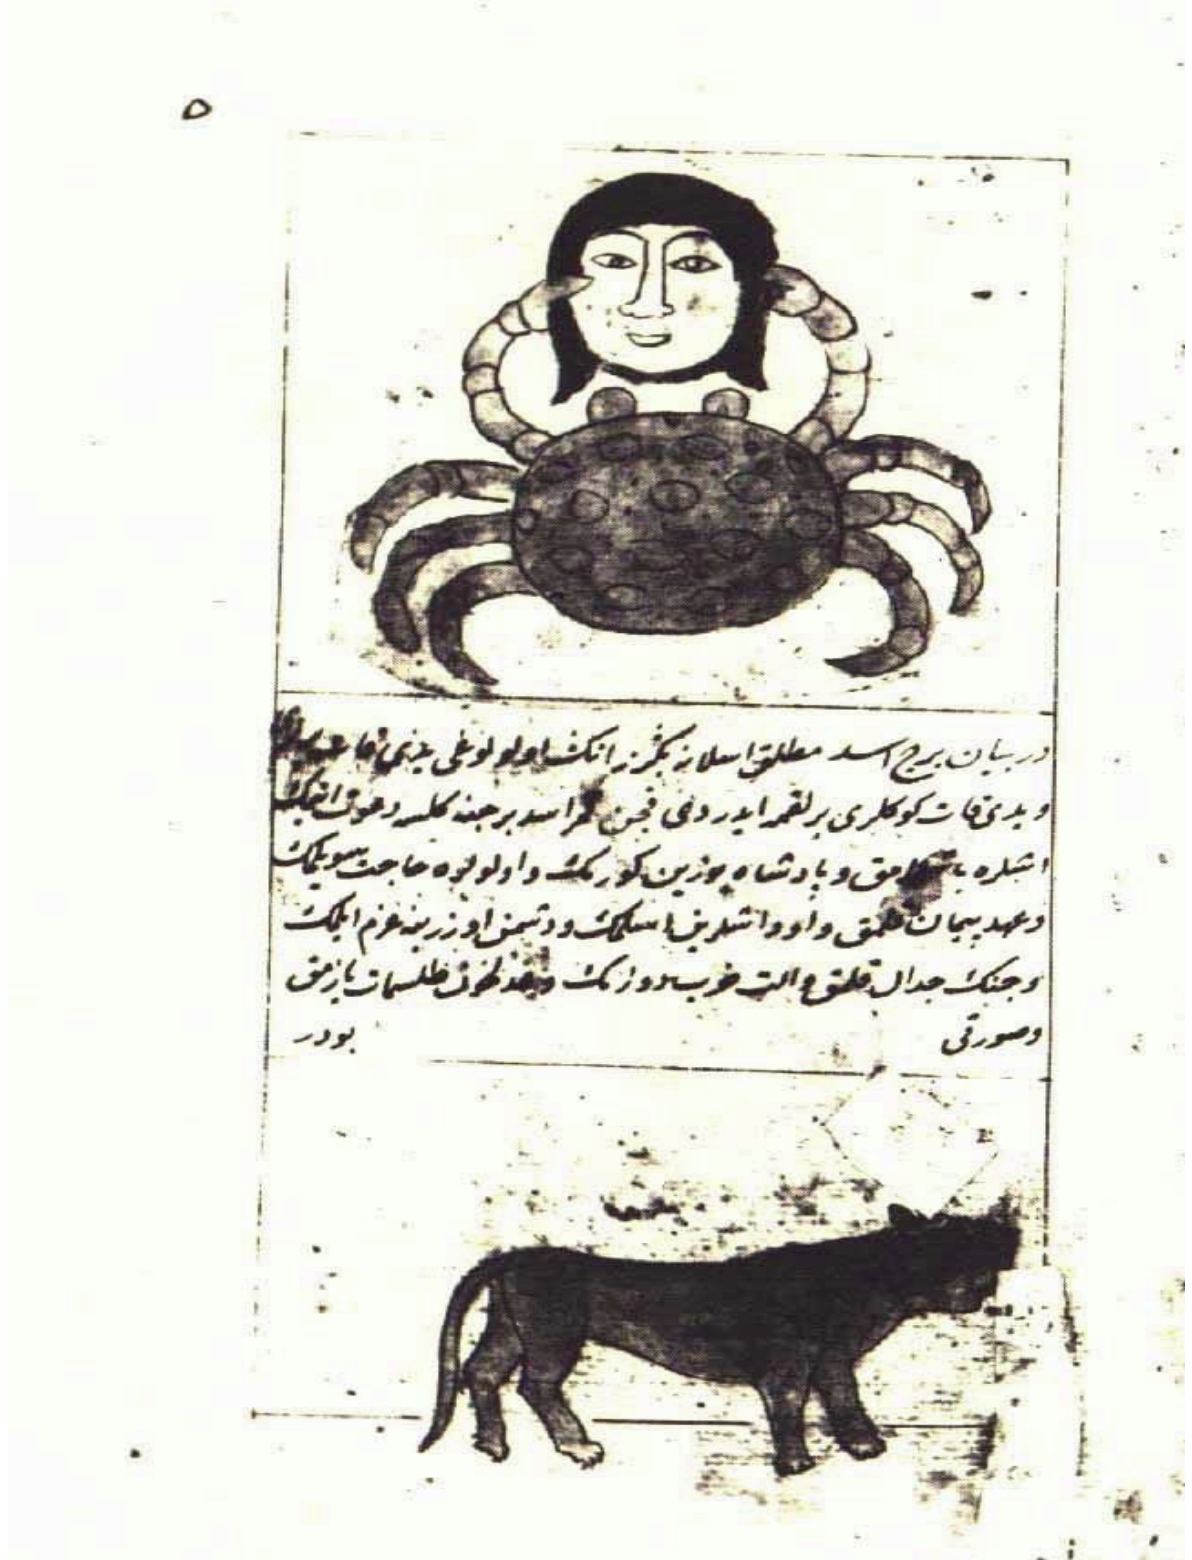 ۵
در بیان برج اسد مطلق اسلان بکزر انک اولولوغی یدی قات
و یدی قات کوکلری بر لقمه ایدردی قچن قمر اسد برجنه کلسه دعوت اتمک
اشلره باشلامق و پادشاه یوزین کورمک و اولولره حاجت سویلمک
و عهد پیمان قلمق و او و اشلرین اسلمک و دشمن اوزرینه عزم ایلمک
و جنک جدال قلمق و الت حرب دوزمک و طلسمات یازمق
وصورتی بودر